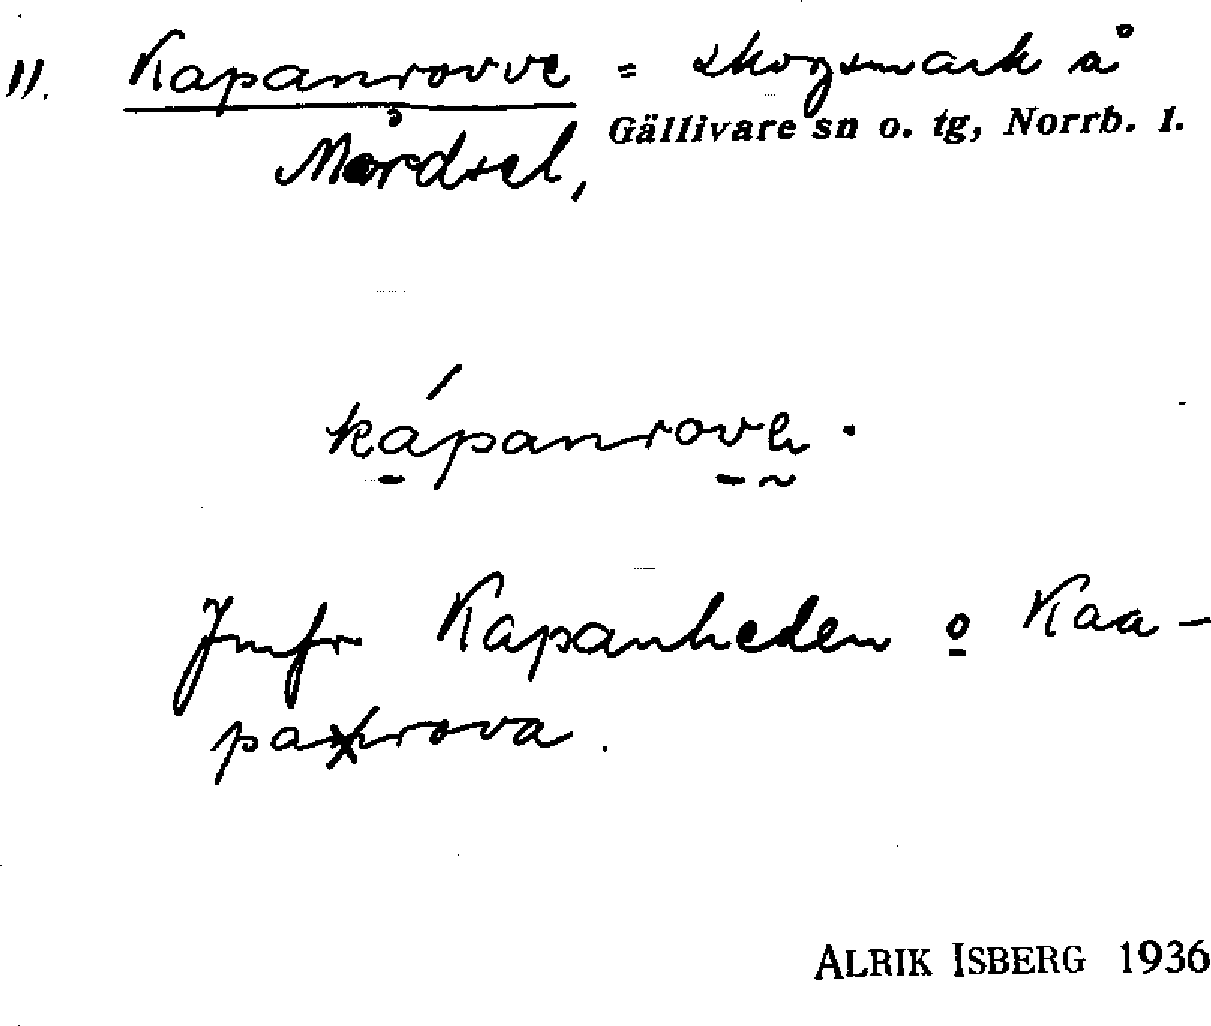 11. Kapanrovve = skogsmark å
Mårdsel, Gällivare sn o. tg, Norrb. l.
kápanrove.
Jmfr Kapanheden o Kaa-
parova.
ALRIK ISBERG 1936